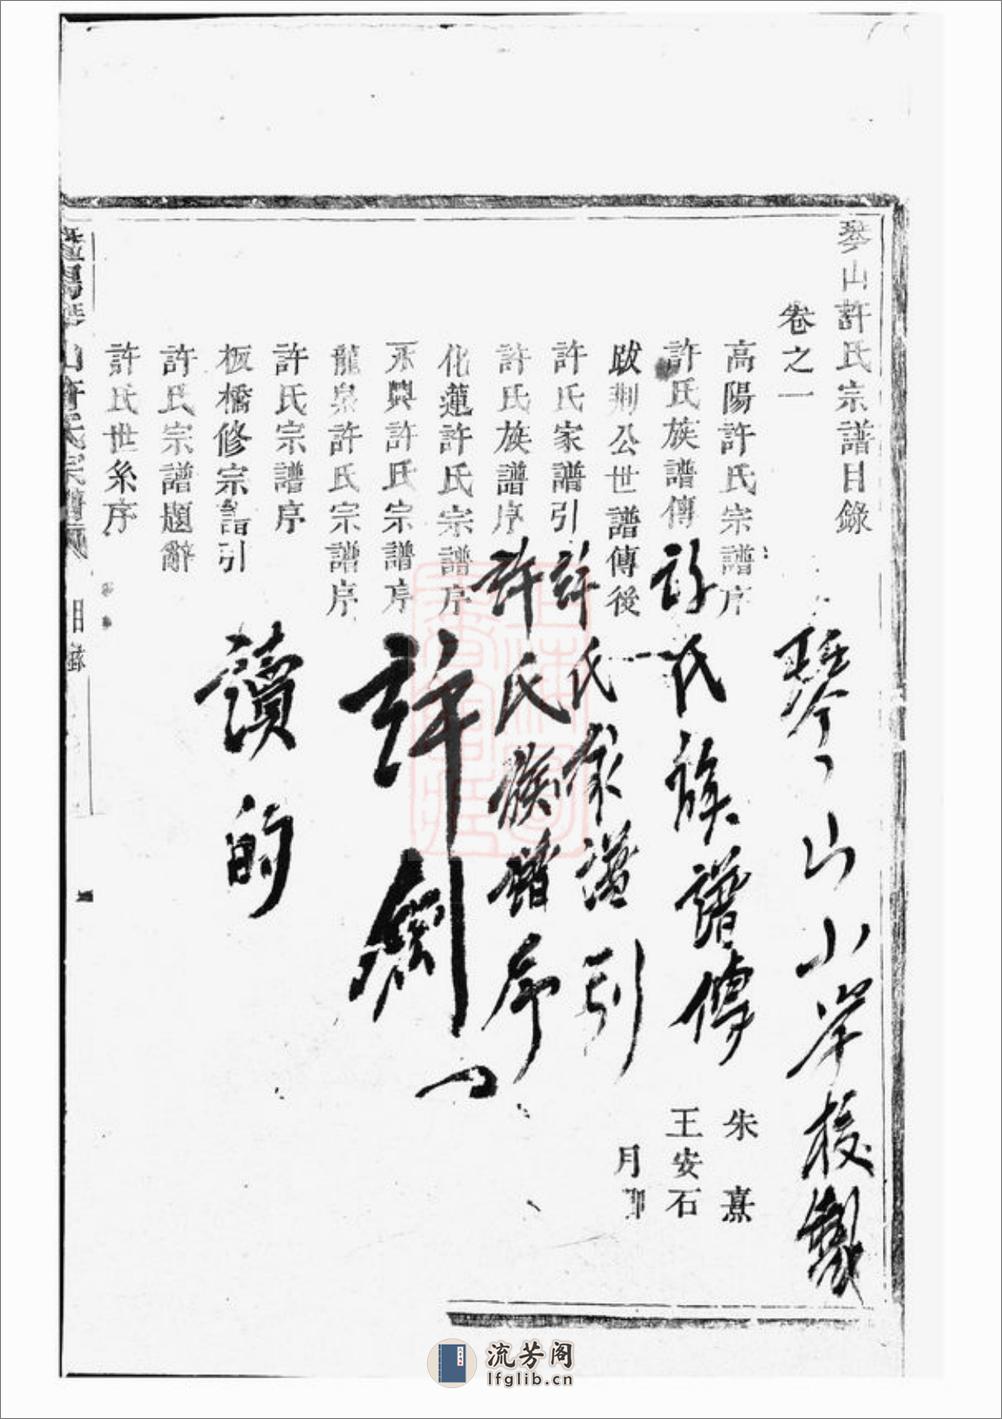 琴山許氏宗譜目錄
卷之一
高陽許氏宗譜序
朱熹
許氏族譜傳
王安石
跋荆公世譜傳後
許氏家譜引
許氏族譜序
化蓮許氏宗譜序
永興許氏宗譜序
龍泉許氏宗譜序
許氏宗譜序
板橋修宗譜引
許氏宗譜題辭
許氏世系序
山許氏宗譜
目錄
琴山小岸校
許氏族譜傳
許氏家譜引
許氏族譜序
許
讀的
流芳阁
lfglib.cn